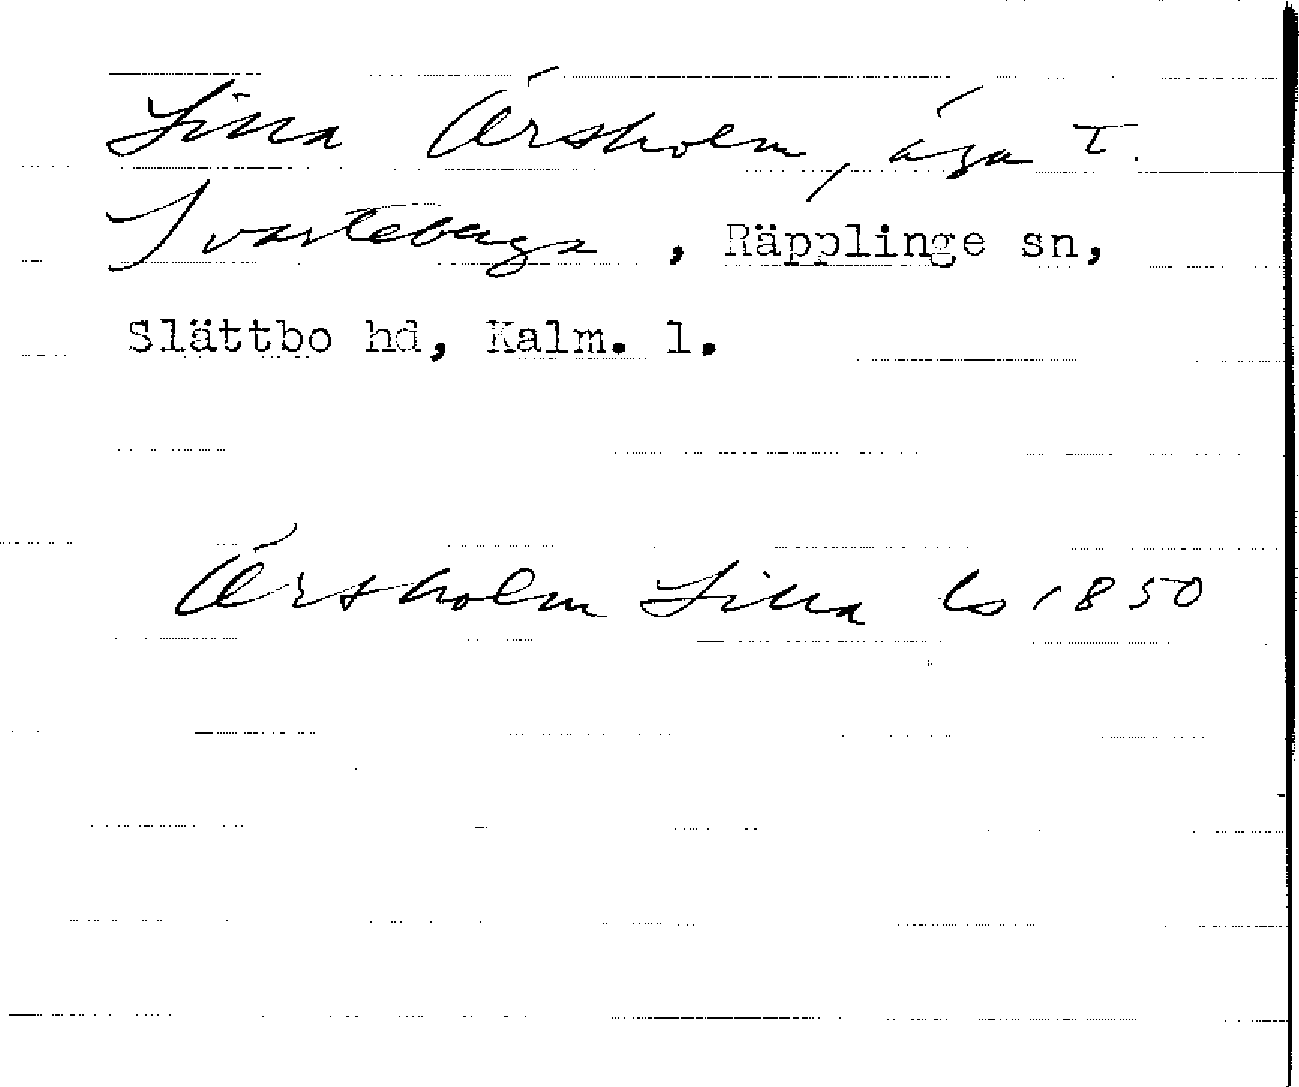 Lilla Ærsholm, äga t.
Svarteberga, Räpplinge sn,
Slättbo hd, Kalm. l.
Ærsholm Lilla ls 1850